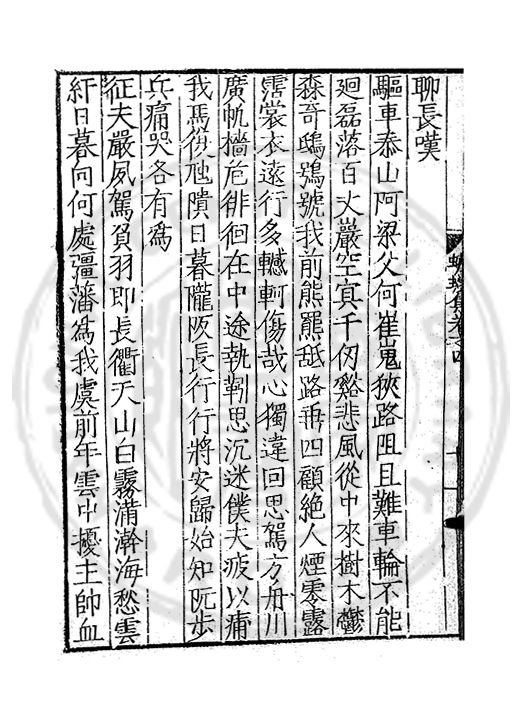 蠛蠓集卷之四
聊長嘆
驅車泰山阿梁父何崔嵬狹路阻且難車輪不能
廻磊落百丈嚴空冥千仞谿悲風從中來樹木鬱
森奇鴟鴞號我前熊羆舐路垂四顧絶人煙零露
霑裳衣遠行多轗軻傷哉心獨違回思駕方舟川
廣帆檣危徘徊在中途執靷思沉迷僕夫疲以痡
我馬復虺隤日暮隴阪長行行將安歸始知阮步
兵痛哭各有為
征夫嚴夙駕負羽即長衢天山白霧滿瀚海愁雲
紆日暮向何處彊藩為我虞前年雲中擾主帥血